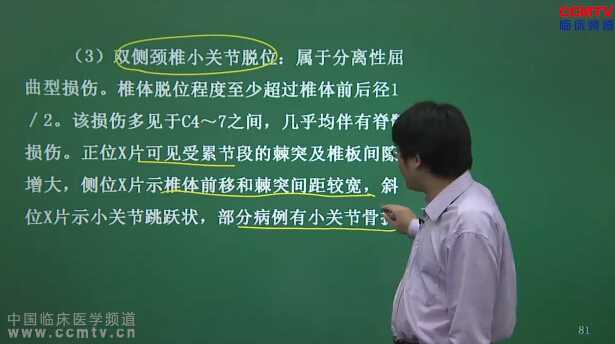 CCMTV
临床频道
（3）双侧颈椎小关节脱位：属于分离性屈
曲型损伤。椎体脱位程度至少超过椎体前后径1
/2。该损伤多见于C4～7之间，几乎均伴有脊
损伤。正位X片可见受累节段的棘突及椎板间隙
增大，侧位X片示椎体前移和棘突间距较宽，斜
位X片示小关节跳跃状，部分病例有小关节骨
中国临床医学频道
www.ccmtv.cn
81